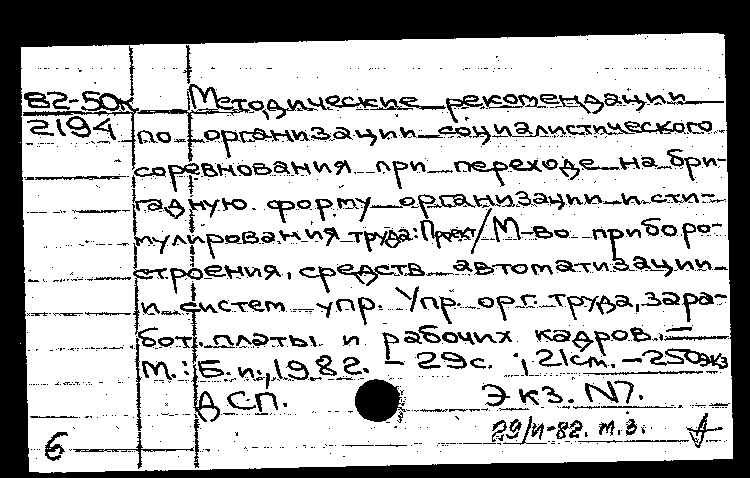 82-50к Методические рекомендации
2194 по организации социалистического
соревнования при переходе на бри-
гадную форму организации и сти-
мулирования труда: Проект/М-во приборо-
строения, средств автоматизации
и систем упр. Упр. орг. труда, зара-
бот. платы и рабочих кадров. —
М.: Б. и., 1982. – 29с. ; 21см. – 250экз
ДСП. Экз. N7.
6 29/и-82. т.з.